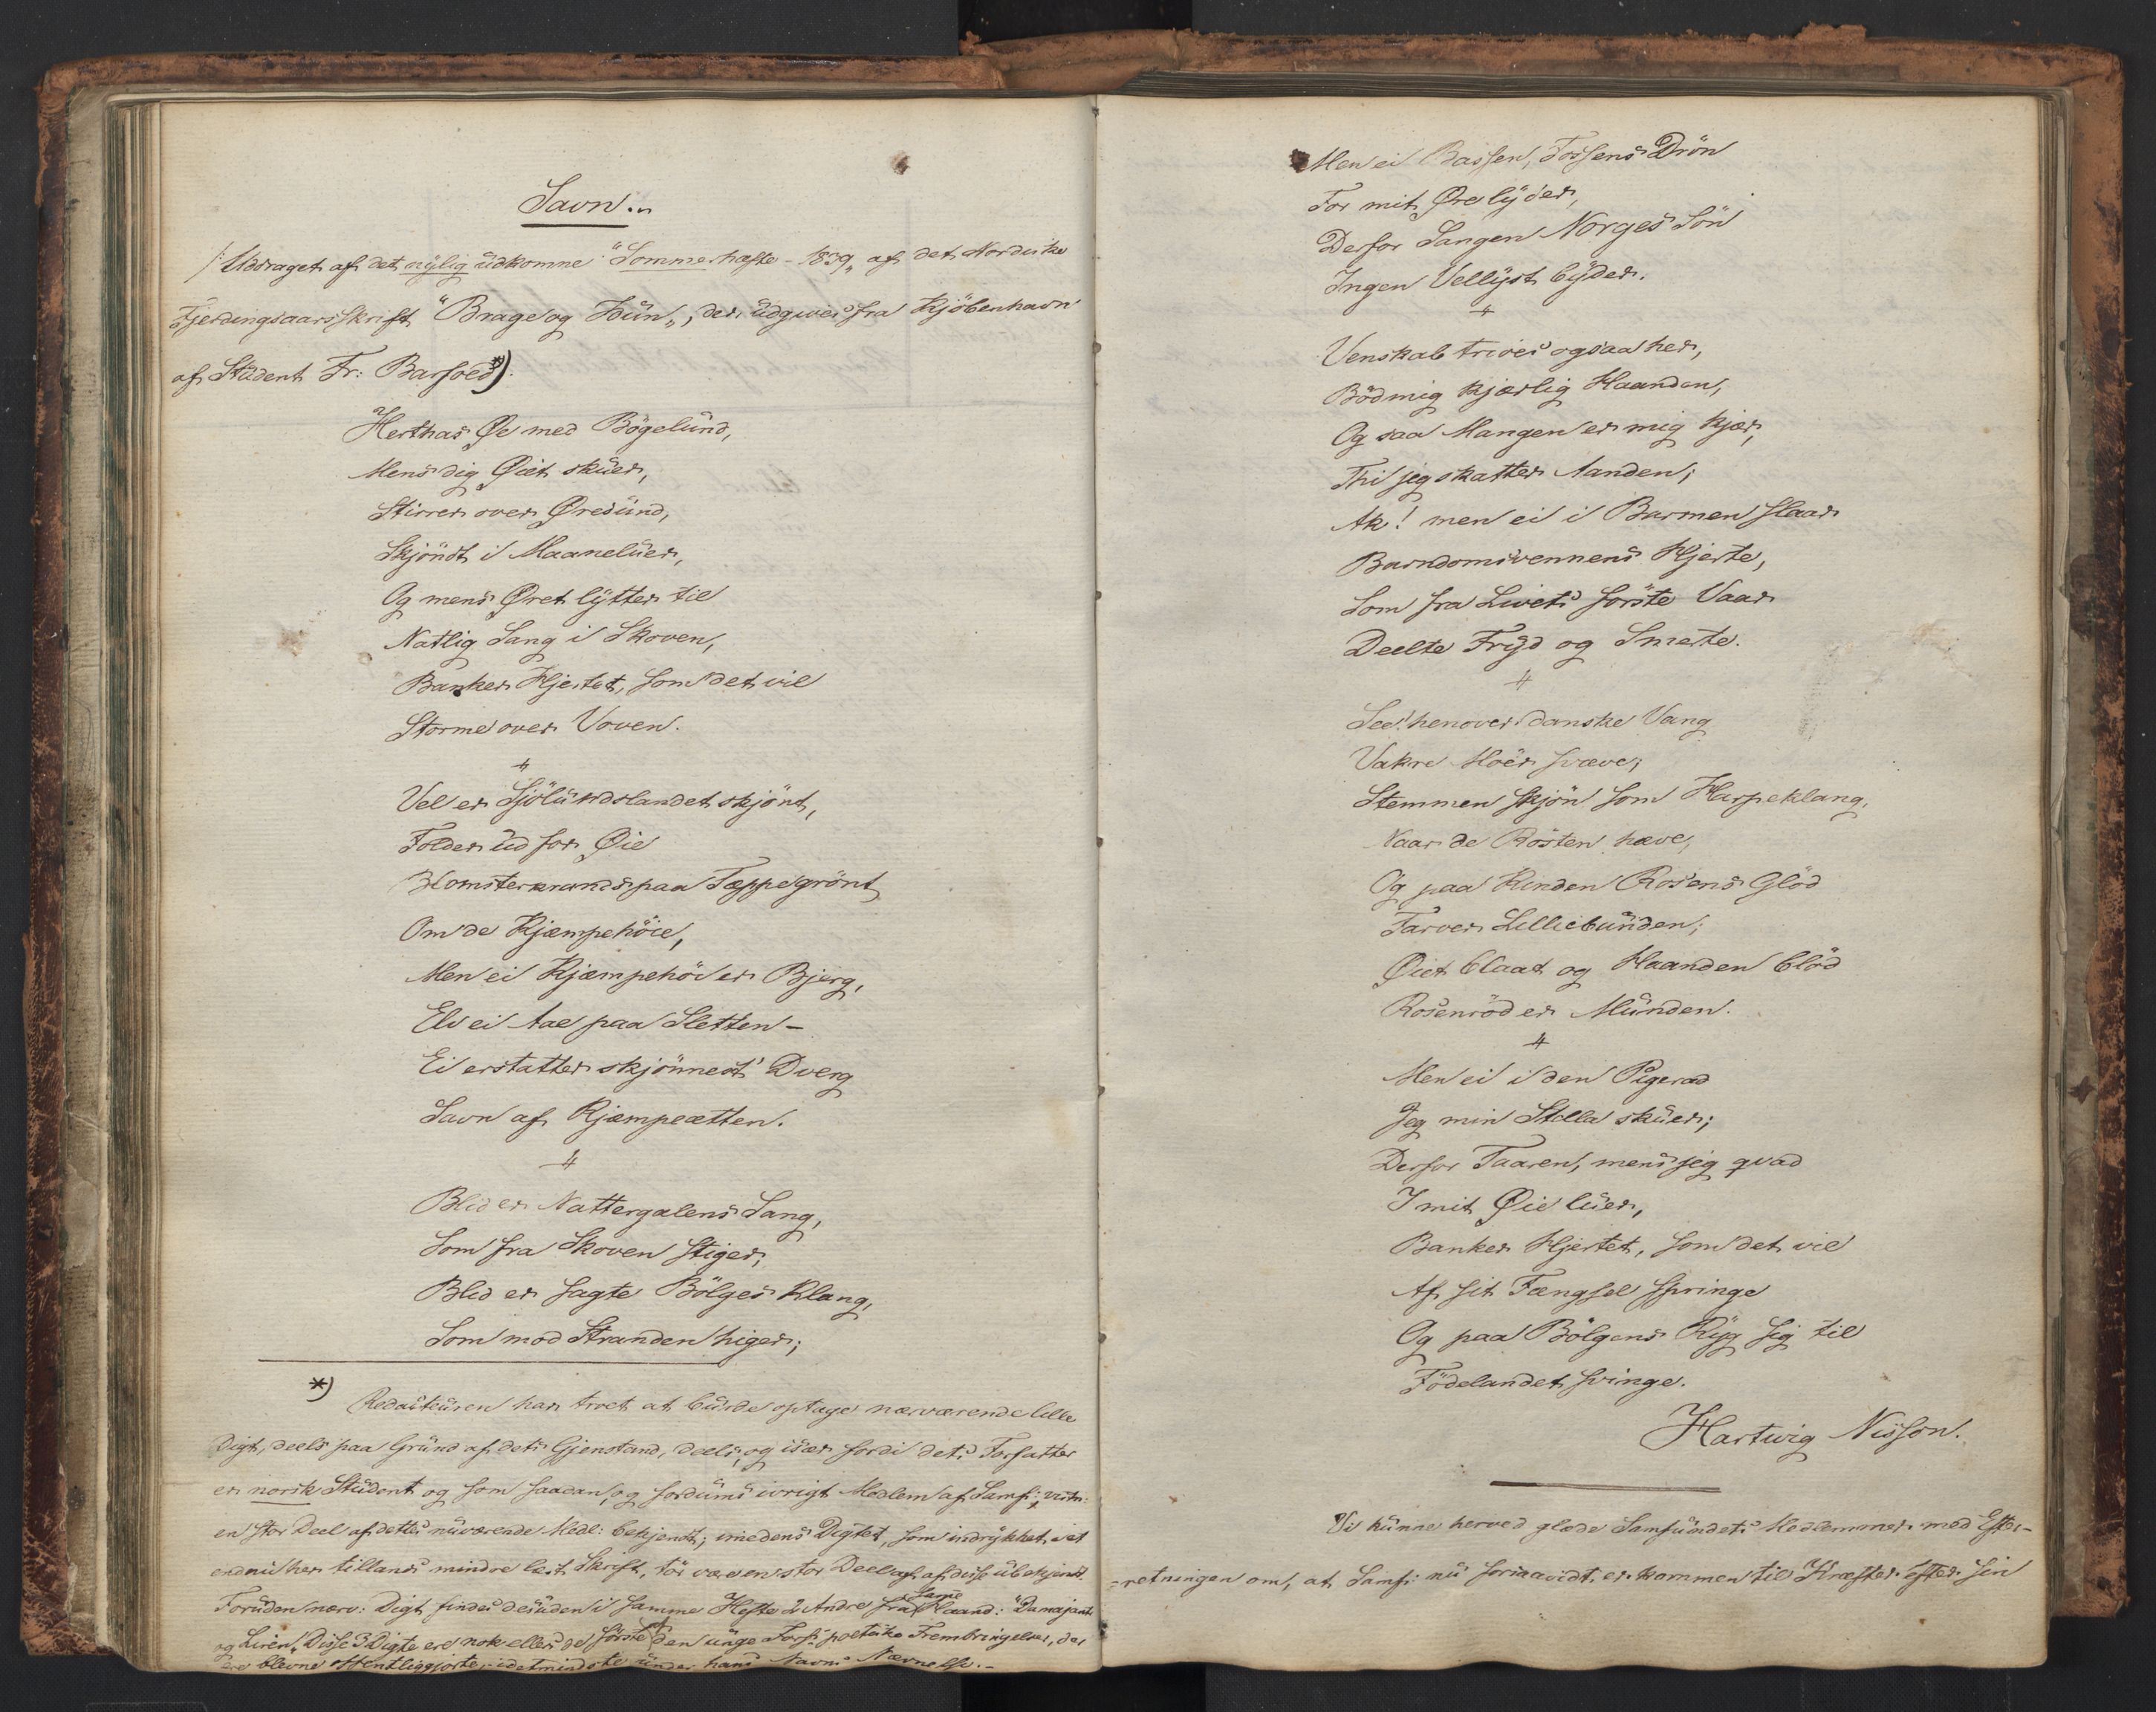 Savn.
/: Uddraget af det nylig udkomne "Sommerhæfte - 1839" af det Nordiske
Fjerdingaarsskrift "Brage og Idun", der udgives fra Kjöbenhavn
af Student Fr: Barfoed*).
Herthas Øe med Bögelund,
Mens dig Øiet skuer,
Stirrer over Øresund,
Skjöndt i Maaneluer,
Og mens Øret lytter til
Natlig Sang i Skoven,
Banker Hjertet, som det vil
Storme over Voven.
Vel er Sjölundslandet skjönt,
Folder ud for Øie
Blomsterkrands paa Tæppe grönt
Om de Kjæmpehöie,
Men ei Kjæmpehöi er Bjerg,
Elv ei Aae paa Sletten –
Ei erstatter skjönnest' Dverg
Savn af Kjæmpeætten.
Blid er Nattergalens Sang,
Som fra Skoven stiger,
Blid er sagte Bölges Klang,
Som mod Stranden higer;
*) Redacteuren har troet at burde optage nærværende lille
Digt, deels paa Grund af dets Gjenstand, deels, og især fordi dets Forfatter
er norsk Student og som saadan, og fordums ivrigt Medlem af Samf:, vistn:
en stor Deel af dettes nuværende Medl: bekjendt; imedens Digtet, som indrykket i et
endnu her tillands mindre læst Skrift, tör være en stor Deel af disse ubekjendt.
Foruden nærv: Digt findes desuden i samme Hefte 2 Andre fra samme Haand: "Damajanti
og Liren". Disse 3 Digte ere nok ellers de förste af den unge Forf: poetiske Frembringelser, der
ere blevne offentliggjorte, idetmindste under hans Navns Nævnelse. –
Men ei Bassen, Fossens Drön
For mit Øre lyder,
Derfor Sangen Norges Sön
Ingen Vellyst byder.
Venskab trives ogsaa her,
Böd mig kjærlig Haanden,
Og saa Mangen er mig kjær,
Thi jeg skatter Aanden;
Ak! men ei i Barmen slaar
Barndomsvennens Hjerte,
Som fra Livets förste Vaar
Deelte Fryd og Smerte.
See! henover danske Vang
Vakre Möer svæve;
Stemmen skjön som Harpeklang,
Naar de Rösten hæve,
Og paa Kinden Rosens Glöd
Farver Lilliebunden;
Øiet blaat og Haanden blöd
Rosenröd er Munden.
Men ei i den Pigerad
Jeg min Stella skuer;
Derfor Taaren, mens jeg qvad
I mit Øie luer,
Banker Hjertet, som det vil
Af sit Fængsel springe
Og paa Bölgens Ryg sig til
Födelandet svinge.
Hartvig Nisson.
Vi kunne herved glæde Samfundets Medlemmer med Efter-
=retningen om, at Samf: nu forsaavidt er kommen til Kræfter efter sin